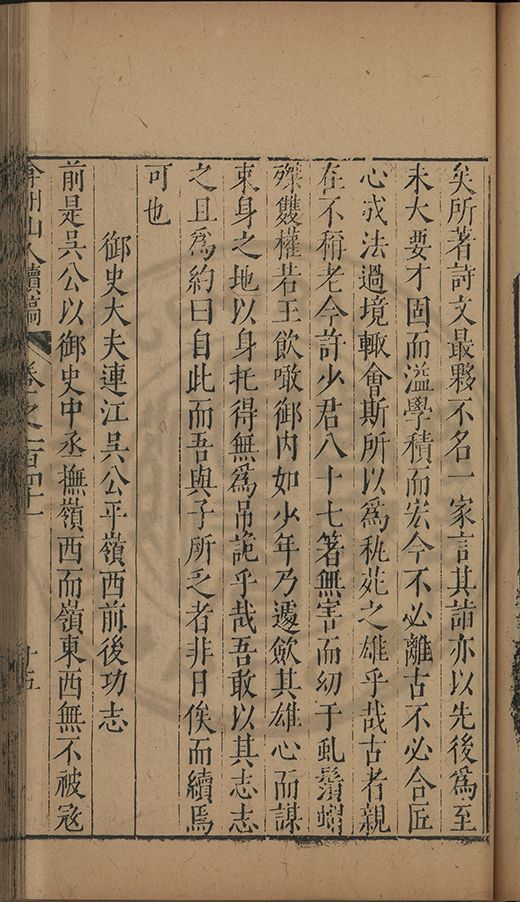 矣所著詩文最夥不名一家言其詣亦以先後爲至
未大要才固而溢學積而宏今不必離古不必合匠
心或法過境輙會斯所以爲秇苑之雄乎哉古者親
在不稱老今許少君八十七箸無害而幼于虬鬚蝟
磔雙權若王飲噉御内如少年乃遽斂其雄心而謀
束身之地以身托得無爲吊詭乎哉吾敢以其志志
之且爲約曰自此而吾與子所乏者非日俟而續焉
可也
御史大夫連江吳公平嶺西前後功志
前是吳公以御史中丞撫嶺西而嶺東西無不被寇
弇州山人續稿 卷之一百四十一 十五